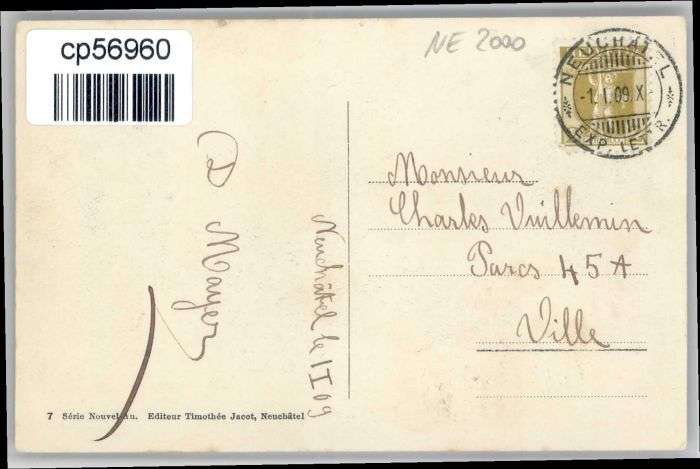 cp56960
NE 2000
NEUCHATEL
-1.I.09.X
EXP. LETTR.
Monsieur
Charles Vuillemin
Parcs 45A
Ville
Neuchâtel le 1 I 09
D Mayer
7 Série Nouvel-An. Editeur Timothée Jacot, Neuchâtel